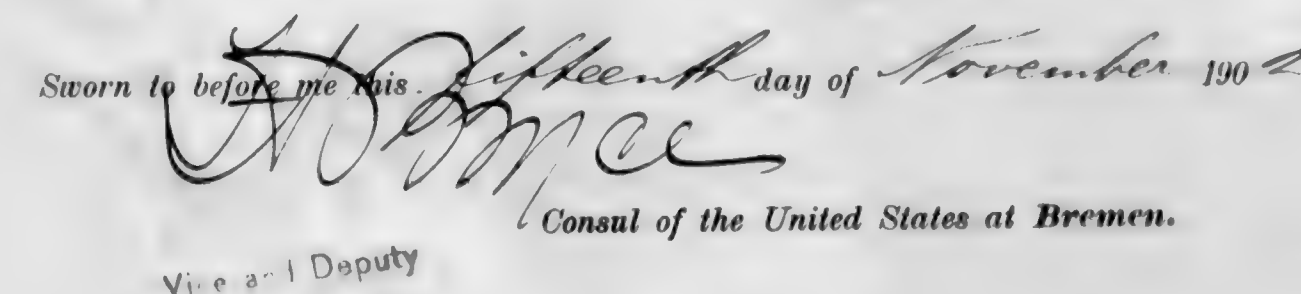 Sworn to before me this. fifteenth day of November 1902
Consul of the United States at Bremen.
Vice and Deputy